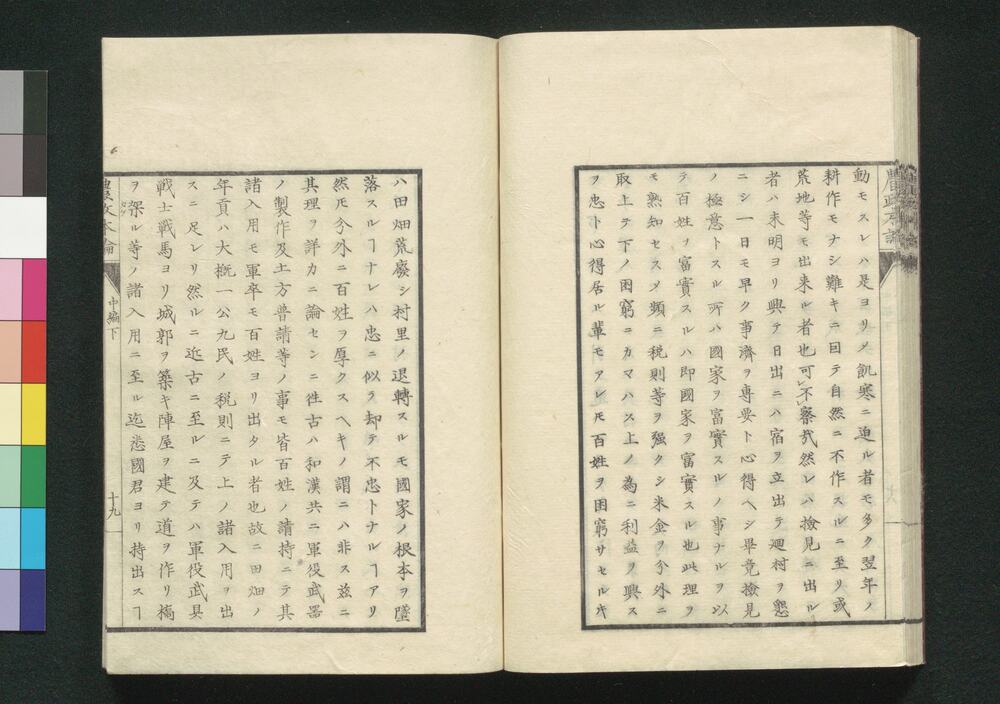 動モスレハ是ヨリメ飢寒ニ迫ル者モ多ク翌年ノ
耕作モナシ難キニ因テ自然ニ不作スルニ至リ或
荒地等モ出来ル者也可㆑不㆑察哉然レハ撿見ニ出ル
者ハ未明ヨリ興テ日出ニハ宿ヲ立出テ廻村ヲ懇
ニシ一日モ早ク事濟ヲ専要ト心得ヘシ畢竟撿見
ノ極意トスル所ハ國家ヲ富實スルノ事ナルヲ以
テ百姓ヲ富實スルハ即國家ヲ富實スル也此理ヲ
モ熟知セスメ頻ニ税則等ヲ强クシ米金ヲ分外ニ
取上テ下ノ困窮ニカマハス上ノ為ニ利益ヲ興ス
ヲ忠ト心得居ル輩モアレ𪜈百姓ヲ困窮サセル片
ハ田畑荒廢シ村里ノ退轉スルモ國家ノ根本ヲ墜
落スルヿナレハ忠ニ似テ却テ不忠トナルヿアリ
然𪜈分外ニ百姓ヲ厚クスヘキノ謂ニハ非ス兹ニ
其理ヲ詳カニ論センニ徃古ハ和漢共ニ軍役武器
ノ製作及土方普請等ノ事モ皆百姓ノ請持ニテ其
諸入用モ軍卒モ百姓ヨリ出タル者也故ニ田畑ノ
年貢ハ大概一公九民ノ税則ニテ上ノ諸入用ヲ出
スニ足レリ然ルニ近古ニ至ルニ及テハ軍役武具
戦士戦馬ヨリ城郭ヲ築キ陣屋ヲ建テ道ヲ作リ橋
ヲ架ル等ノ諸入用ニ至ル迄悉國君ヨリ持出スヿ
中編下
十九